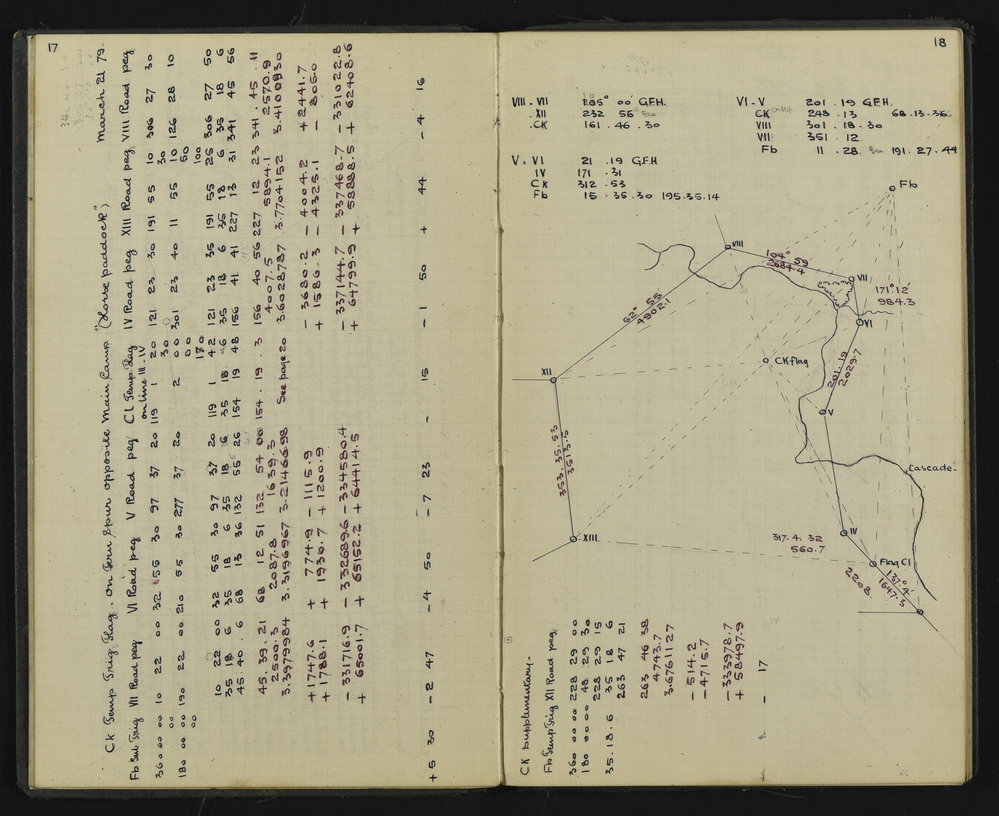 17
CK Temp Trig Flag - on Fern Spur opposite Main Camp "(Horse paddock") March 21 79.
Fb Sub Trig VII Road peg VI Road peg V Road peg CI Temp Flag on line III - IV IV Road peg XIII Road peg VIII Road peg
360 00 00 10 22 00 32 55 30 97 37 20 119 1 20 121 23 30 191 55 10 306 27 30
180 00 00 190 22 00 210 55 30 277 37 20 2 00 301 23 40 11 55 10 126 28 10
10 22 00 32 55 30 97 37 20 119 1 42 121 23 35 191 55 25 306 27 50
35 18 6 35 18 6 35 18 6 35 18 6 35 18 6 35 18 6 35 18 6
45 40 6 68 13 36 132 55 26 154 19 48 156 41 41 227 13 31 341 45 56
45 39 21 68 12 51 132 54 00 154 19 3 156 40 56 227 12 23 341 45 11
2500.3 2087.8 1639.3 4007.5 5894.1 2570.9
3.3979984 3.3196967 3.2146698 See page 20 3.6028787 3.7704152 3.4100930
+1747.6 + 774.9 - 1115.9 - 3680.2 - 4004.2 + 2441.7
+1788.1 + 1930.7 + 1200.9 + 1586.3 - 4325.1 - 805.0
- 331716.9 - 332689.6 - 334580.4 - 337144.7 - 337468.7 - 331022.8
+ 65001.7 + 65152.2 + 64414.5 + 64799.9 + 58888.5 + 62408.6
+5 30 - 2 47 - 4 50 - 7 23 - 15 - 1 50 + 44 - 4 16
18
VIII - VII 105° 00' G.F.H.
XII 232 56
CK 161 . 46 . 30
VI - V 201 . 19 G.F.H.
CK 248 . 13 68.13.36
VIII 301 . 18 . 30
VII 351 . 12
Fb 11 . 28 191 . 27 . 44
V - VI 21 . 19 G.F.H
IV 171 . 31
CK 312 . 53
Fb 15 . 35 . 30 195.35.14
Fb
VIII
104° 59
2684.4
VII
171° 12'
984.3
52° 55
4902.1
VI
CK flag
201.19
2029.7
XII
V
353.35.53
3513.5
Cascade.
XIII
317. 4. 32
560.7
IV
Flag CI
2208
137° 4'
1647.3
CK Supplementary.
Fb Temp Trig XII Road peg
360 00 00 228 29 00
180 00 00 48 29 30
228 29 15
35.18.6 35 18 6
263 47 21
263 46 38
4743.7
3.6761127
- 514.2
- 4715.7
- 333978.7
+ 58497.9
- 17